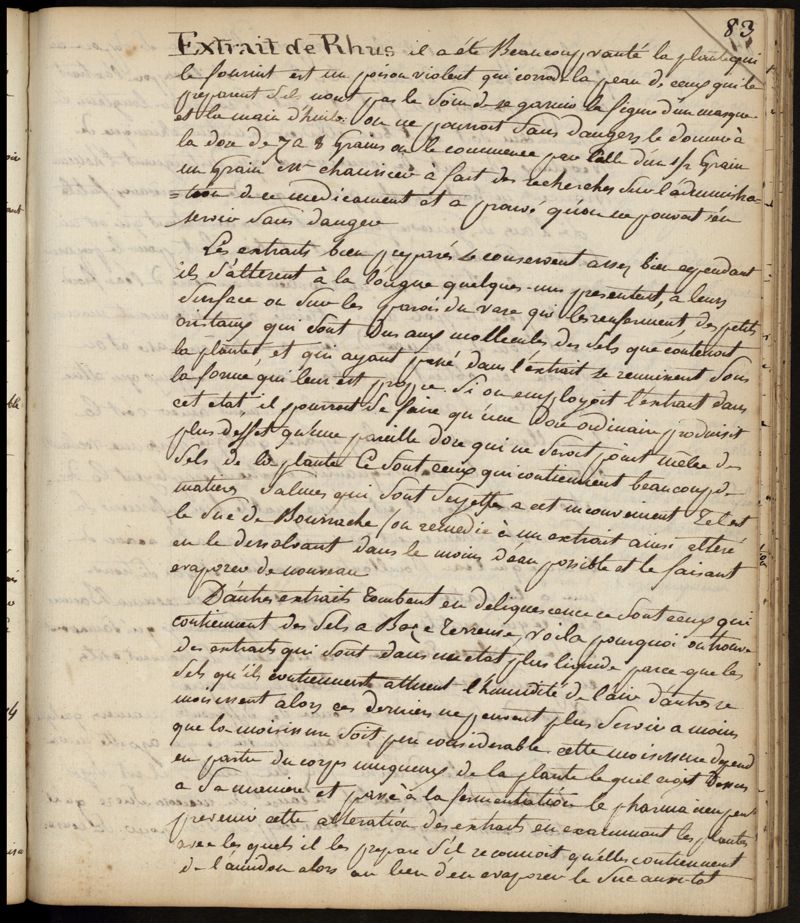 83
Extrait de Rhus il a été Beaucoup vanté la plante qui
le fournit est un poison violent qui corrode la peau de ceux qui le
preparent s'ils n'ont pas le soin de se garnir la figure d'un masque
et la main d'huile. on ne pourroit sans dangers le donner à
la dose de 7 a 8 grains on le commence par celle d'un 1/2 grain
un grain Mr chaussier à fait des recherches sur l'administra-
=tion de ce medicament et a prouvé qu'on ne pouvoit s'en
servir sans danger
Les extraits bien preparés se conservent assez bien cependant
ils s'alterent à la longue quelques-uns presentent, à leurs
surface ou sur les parois du vase qui les renferment, des petits
cristaux qui sont dus aux mollecules des sels que contenoit
la plante, et qui ayant passé dans l'extrait se reunissent sous
la forme qui leur est propre. Si on employoit l'extrait dans
cet etat il pourroit se faire qu'une Dose ordinaire produisit
plus d'effet qu'une pareille dose qui ne seroit point mêlée de
sels de la plante Ce sont ceux qui contiennent beaucoup de
matieres salines qui sont sujettes a cet inconvenient Tel est
le suc de Bourrache (on remedie à un extrait ainsi alteré
en le dissolvant dans le moins d'eau possible et le faisant
evaporer de nouveau
D'autres extraits tombent en deliquescence ce sont ceux qui
contiennent des sels a Base Terreuse, voila pourquoi on trouve
des extraits qui sont dans un etat plus liquide parce que les
sels qu'ils contiennent attirent l'humidité de l'air d'autres se
moisissent alors ces derniers ne peuvent plus servir a moins
que la moisissure soit peu considerable cette moisissure depend
en partie du corps muqueux de la plante le quel agit Dessus
a sa maniere et passe à la fermentation le pharmacien peut
prevenir cette alteration des extraits en examinant les plantes
avec les quels il les prepare s'il reconnoit qu'elles contiennent
de l'amidon alors au lieu d'en evaporer le suc aussitot